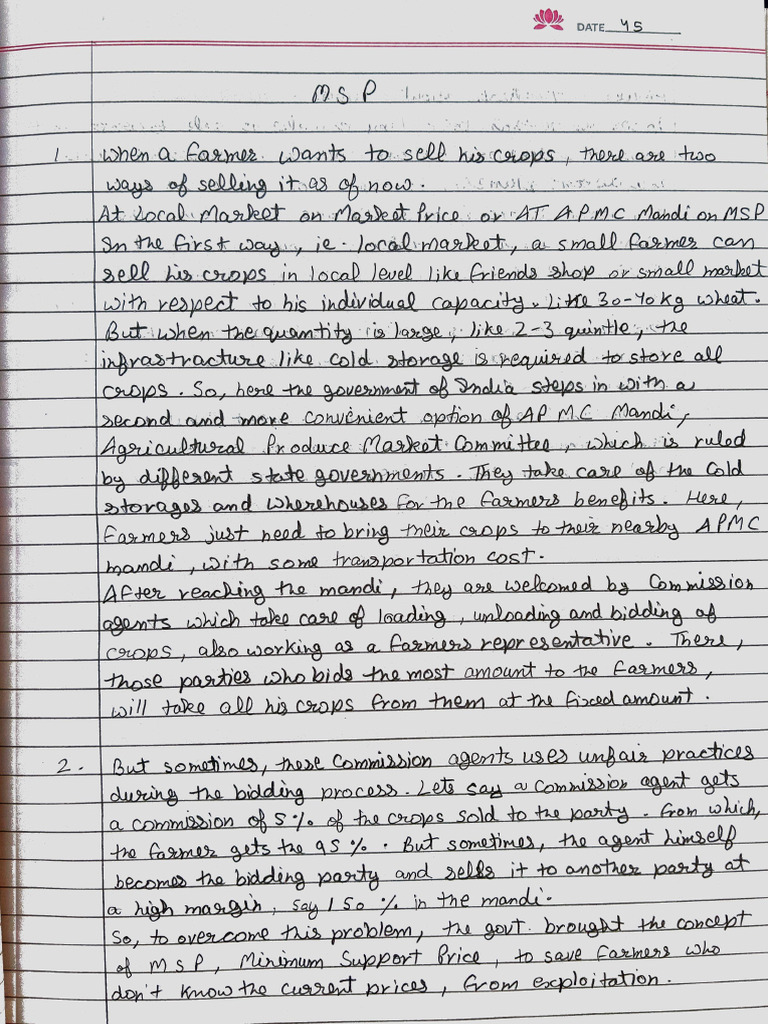 DATE 45
MSP
1. When a farmer wants to sell his crops, there are two
ways of selling it as of now.
At Local Market on Market Price or AT APMC Mandi on MSP
In the first way, ie. local market, a small farmer can
sell his crops in local level like friends shop or small market
with respect to his individual capacity. Like 30-40 kg wheat.
But when the quantity is large, like 2-3 quintle, the
infrastracture like cold storage is required to store all
crops. So, here the government of India steps in with a
second and more convenient option of APMC Mandi,
Agricultural Produce Market Committee, which is ruled
by different state governments. They take care of the cold
storages and wherehouses for the farmers benefits. Here,
farmers just need to bring their crops to their nearby APMC
mandi, with some transportation cost.
After reaching the mandi, they are welcomed by Commission
agents which take care of loading, unloading and bidding of
crops, also working as a farmers representative. There,
those parties who bids the most amount to the farmers,
will take all his crops from them at the fixed amount.
2. But sometimes, these Commission agents uses unfair practices
during the bidding process. Lets say a Commission agent gets
a commission of 5% of the crops sold to the party. From which,
the farmer gets the 95%. But sometimes, the agent himself
becomes the bidding party and sells it to another party at
a high margin, say 150% in the mandi.
So, to overcome this problem, the govt. brought the concept
of MSP, Minimum Support Price, to save farmers who
don't know the current prices, from exploitation.